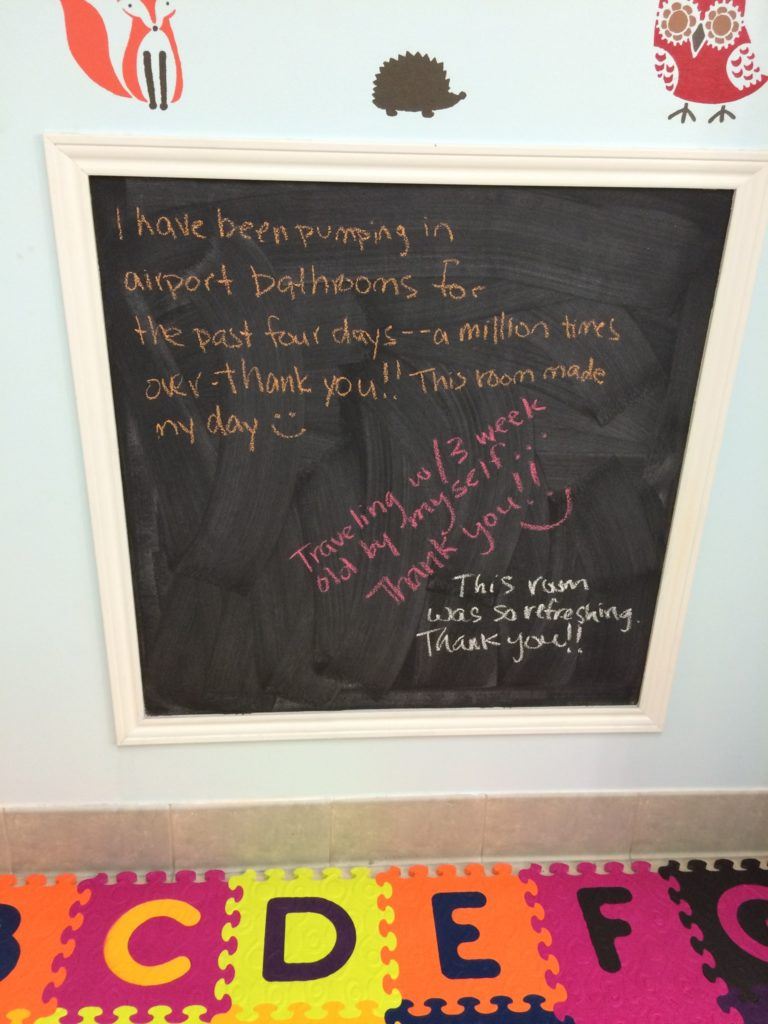 I have been pumping in
airport bathrooms for
the past four days--a million times
over-thank you!! This room made
my day :)
Traveling w/3 week
old by myself...
Thank you!! :)
This room
was so refreshing.
Thank you!!
B C D E F G